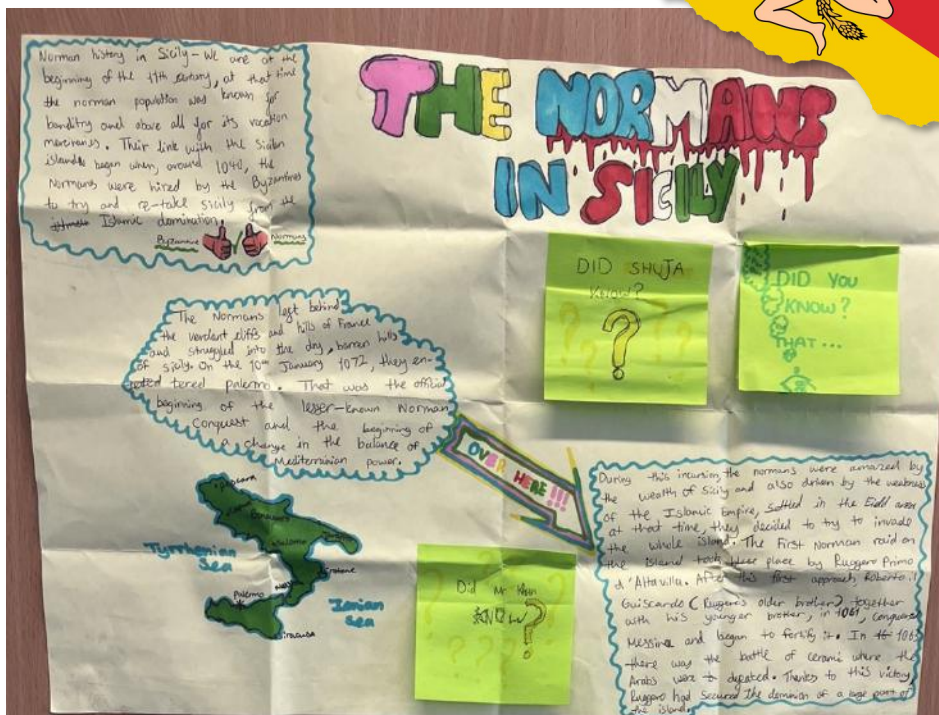 Norman history in Sicily - We are at the
beginning of the 11th century, at that time
the norman population was known for
banditry and above all for its vocation
mercenaries. Their link with the Sicilian
islands began when, around 1040, the
Normans were hired by the Byzantines
to try and re-take Sicily from the
Islamic domination.
Byzantine Normans
THE NORMANS
IN SICILY
DID SHUJA
KNOW?
?
DID YOU
KNOW?
THAT...
The Normans left behind
the verdant cliffs and hills of France
and struggled into the dry, barren hills
of sicily. On the 10th January 1072, they en-
tered palermo. That was the official
beginning of the lesser-known Norman
Conquest and the beginning of
a change in the balance of
Mediterranian power.
OVER HERE!!!
Tyrrhenian
Sea
Palermo
Ionian
Sea
Siracusa
Did Mr Khan
KNOW?
During this incursion, the normans were amazed by
the wealth of Sicily and also driven by the weakness
of the Islamic Empire, settled in the area
at that time, they decided to try to invade
the whole island. The First Norman raid on
the island took place by Ruggero Primo
d'Altavilla. After this first approach, Roberto il
Guiscardo (Ruggero's older brother) together
with his younger brother, in 1061, conquered
Messina and began to fortify it. In 1063
there was the battle of cerami where the
Arabs were defeated. Thanks to this victory,
Ruggero had secured the dominion of a large part of
the island.